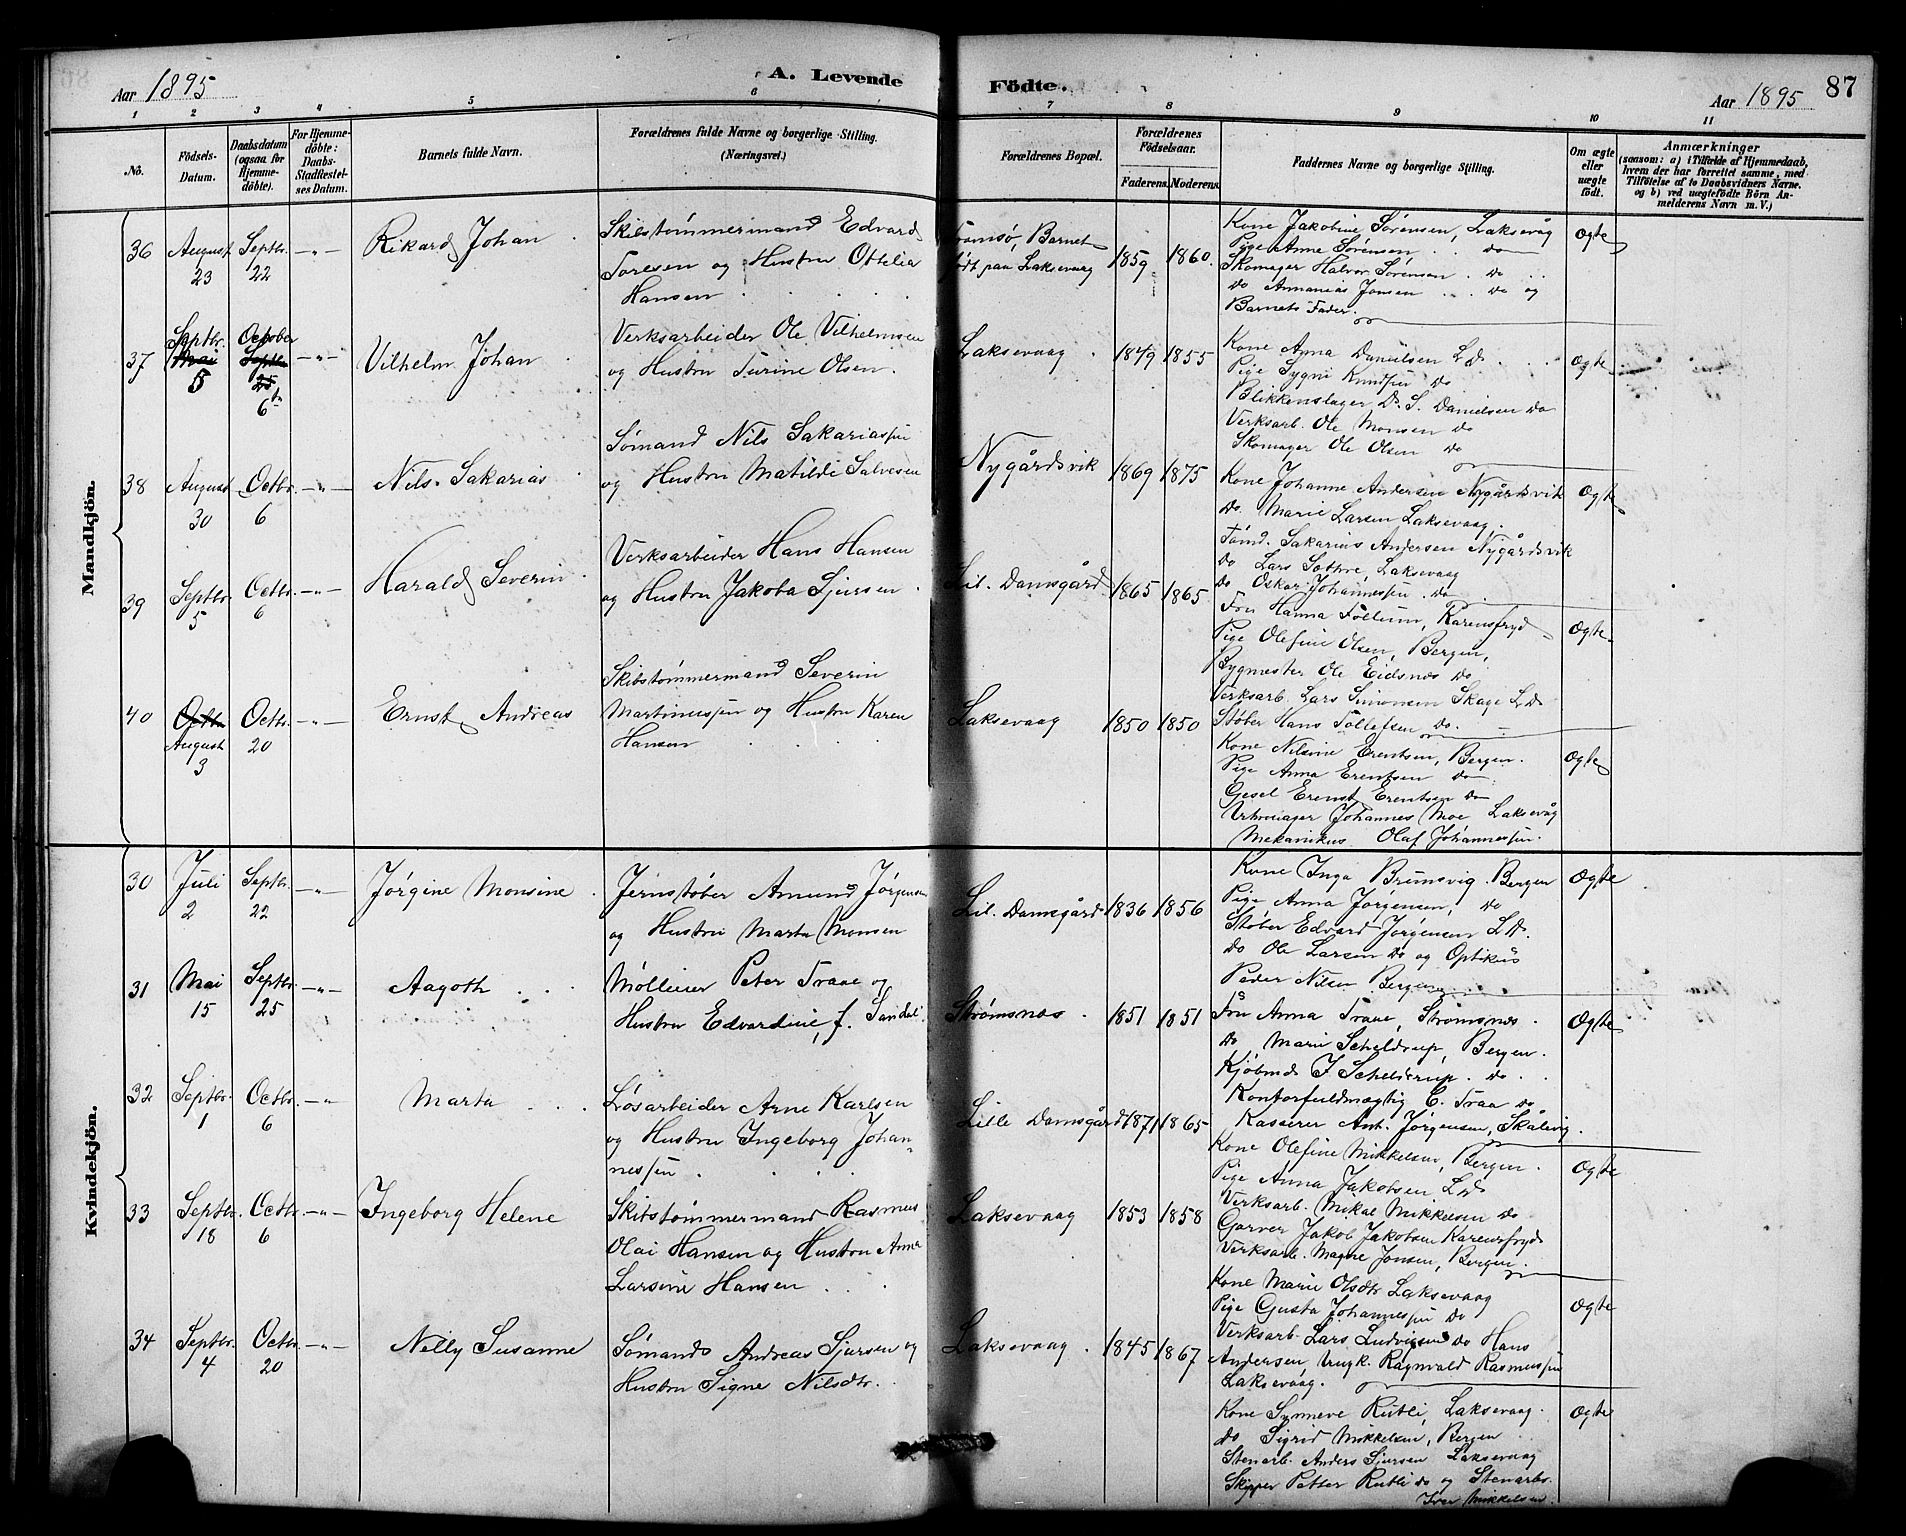 Aar 1895
A. Levende
Födte.
Aar 1895
87
1 2 3 4 5 6 7 8 9 10 11
No.
Födsels-
Datum.
Daabsdatum
(ogsaa for
Hjemme-
döbte).
For Hjemme-
döbte:
Daabs-
Stadfæstel-
ses Datum.
Barnets fulde Navn.
Forældrenes fulde Navne og borgerlige Stilling.
(Næringsvei.)
Forældrenes Bopæl.
Forældrenes
Födselsaar.
Faderens. Moderens.
Faddernes Navne og borgerlige Stilling.
Om ægte
eller
uægte
födt.
Anmærkninger
(saasom: a) i Tilfælde af Hjemmedaab,
hvem der har forrettet samme, med
Tilföielse af to Daabsvidners Navne.
og b) ved uægtefödte Börn An-
melderens Navn m. V.)
Mandkjön.
36
August
23
Septbr.
22
-"-
Rikard Johan
Skibstømmermand Edvard
Toresen og Hustru Ottelia
Hansen
Tromsø, Barnet
født paa Laksevaag
1859
1860.
Kone Jakobine Sørensen, Laksevåg
Pige Anne Sørensen do
Skomager Halvor Sørensen do
do Annanias Jansen do og
Barnets Fader.
Ægte
37
Septbr.
Mai
5
October
Septbr
25
6te
-"-
Vilhelm Johan
Verksarbeider Ole Vilhelmsen
og Hustru Turine Olsen.
Laksevaag
1849
1855
Kone Anna Danielsen Ld.
Pige Sygni Knudsen do
Blikkenslager D. S. Danielsen do
Verksarb. Ole Monsen do
Skomager Ole Olsen do
Ægte
38
August
30
Octbr.
6
-"-
Nils Sakarias
Sømand Nils Sakariassen
og Hustru Matilde Salvesen
Nygårdsvik
1869
1875
Kone Johanne Andersen Nygårdsvik
do. Marie Larsen Laksevaag.
Tømd. Sakarias Andersen Nygårdsvik
do Lars Sottre, Laksevaag
do Oskar Johannessen do
Ægte
39
Septbr.
5
Octbr.
6
-"-
Harald Severin
Verksarbeider Hans Hansen
og Hustru Jakoba Sjursen
Lil. Damsgård
1865
1865
Fru Hanna Follum, Karensfryd
Pige Olefine Olsen, Bergen,
Bygmester Ole Eidsnæs do
Verksarb. Lars Simonsen Skage Ld.
Støber Hans Tollefsen do.
Ægte
40
Octb
August
3
Octbr.
20
-"-
Ernst Andreas
Skibstømmermand Severin
Martinussen og Hustru Karen
Hansen
Laksevaag
1850
1850
Kone Nilsine Erentsen, Bergen.
Pige Anna Erentsen do
Gesel Erenst Erentsen do
Urhmager Johannes Moe Laksevåg
Mekanikus Olaf Johannessen.
Ægte
Kvindekjön.
30
Juli
2
Septbr.
22
-"-
Jørgine Monsine
Jernstøber Amund Jørgensen
og Hustru Marta Monsen
Lil. Damsgård
1836
1856
Kone Inga Brunsvig. Bergen
Pige Anna Jørgensen, do
Støber Edvard Jørgensen Ld.
do Ole Larsen do og Optikus
Peder Nilsen Bergen
Ægte
31
Mai
15
Septbr.
25
-"-
Aagoth
Mølleier Peter Traae og
Hustru Edvardine, f. Sandal.
Strømsnæs
1851
1851
Fru Anna Traae, Strømsnæs
do Marie Scheldrup, Bergen.
Kjøbmd J. Schelderup. do
Kontorfuldmægtig C. Traa do
Kasserer Ant. Jørgensen, Skålevig.
Ægte
32
Septbr.
1
Octbr.
6
-"-
Marta
Løsarbeider Arne Karlsen
og Hustru Ingeborg Johan-
nessen
Lille Damsgård
1871
1865
Kone Olefine Mikkelsen, Bergen.
Pige Anna Jakobsen Ld
Verksarb. Mikal Mikkelsen do
Garver Jakob Jakobsen Karensfryd
Verksarb. Magne Jonsen, Bergen.
Ægte
33
Septbr.
18
Octbr.
6
-"-
Ingeborg Helene
Skibstømmermand Rasmus
Olai Hansen og Hustru Anne
Larsine Hansen
Laksevaag
1853
1858
Kone Marie Olsdtr Laksevaag
Pige Gusta Johannessen do
Verksarb. Lars Ludvigsen do Hans
Andersen, Ungk. Ragnvald Rasmussen
Laksevaag.
Ægte
34
Septbr.
4
Octbr.
20
-"-
Nelly Susanne
Sømand Andreas Sjursen og
Hustru Signe Nilsdtr.
Laksevaag
1845
1867
Kone Synneve Rubli, Laksevaag.
do Sigrid Mikkelsen, Bergen
Stenarb. Anders Sjursen Laksevaag
Skipper Petter Rubli do og Stenarb.
Iver Mikkelsen.
Ægte